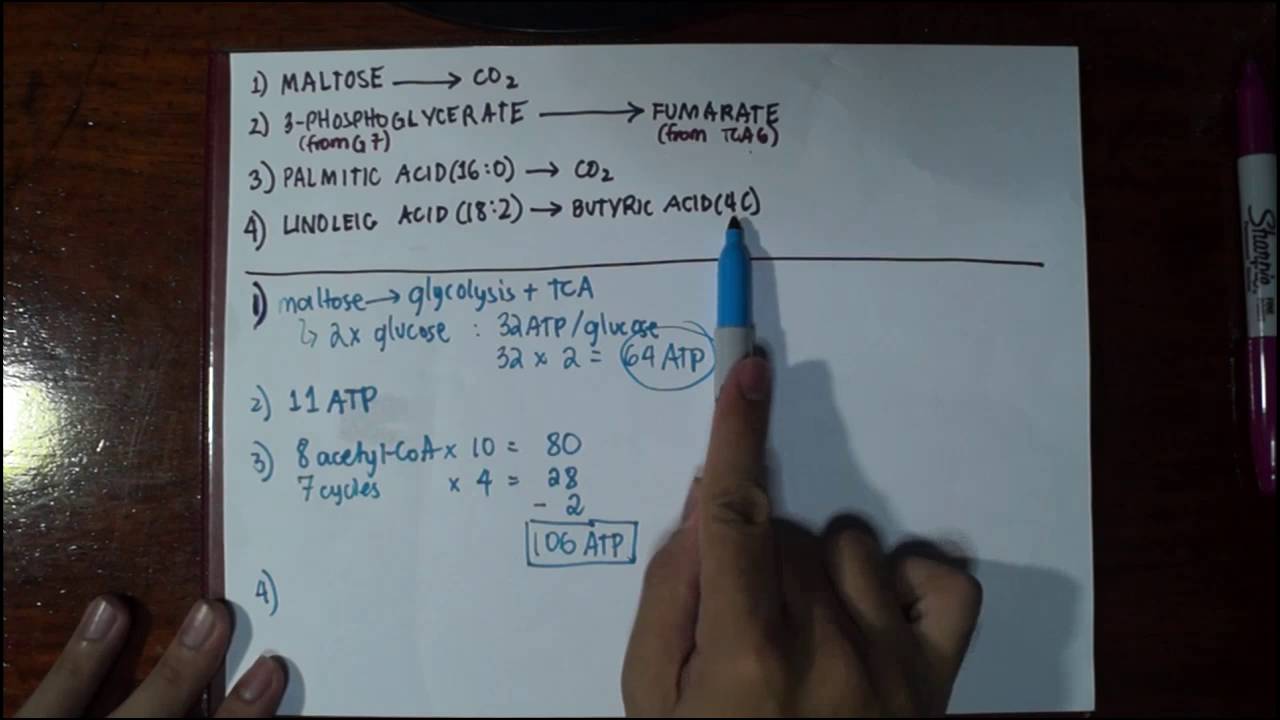 1) MALTOSE → CO2
2) 3-PHOSPHOGLYCERATE → FUMARATE
(from G7) (from TCA6)
3) PALMITIC ACID (16:0) → CO2
4) LINOLEIC ACID (18:2) → BUTYRIC ACID (4C)
1) maltose → glycolysis + TCA
↳ 2x glucose : 32 ATP/glucose
32 x 2 = 64 ATP
2) 11 ATP
3) 8 acetyl-CoA x 10 = 80
7 cycles x 4 = 28
- 2
106 ATP
4)
Sharpie